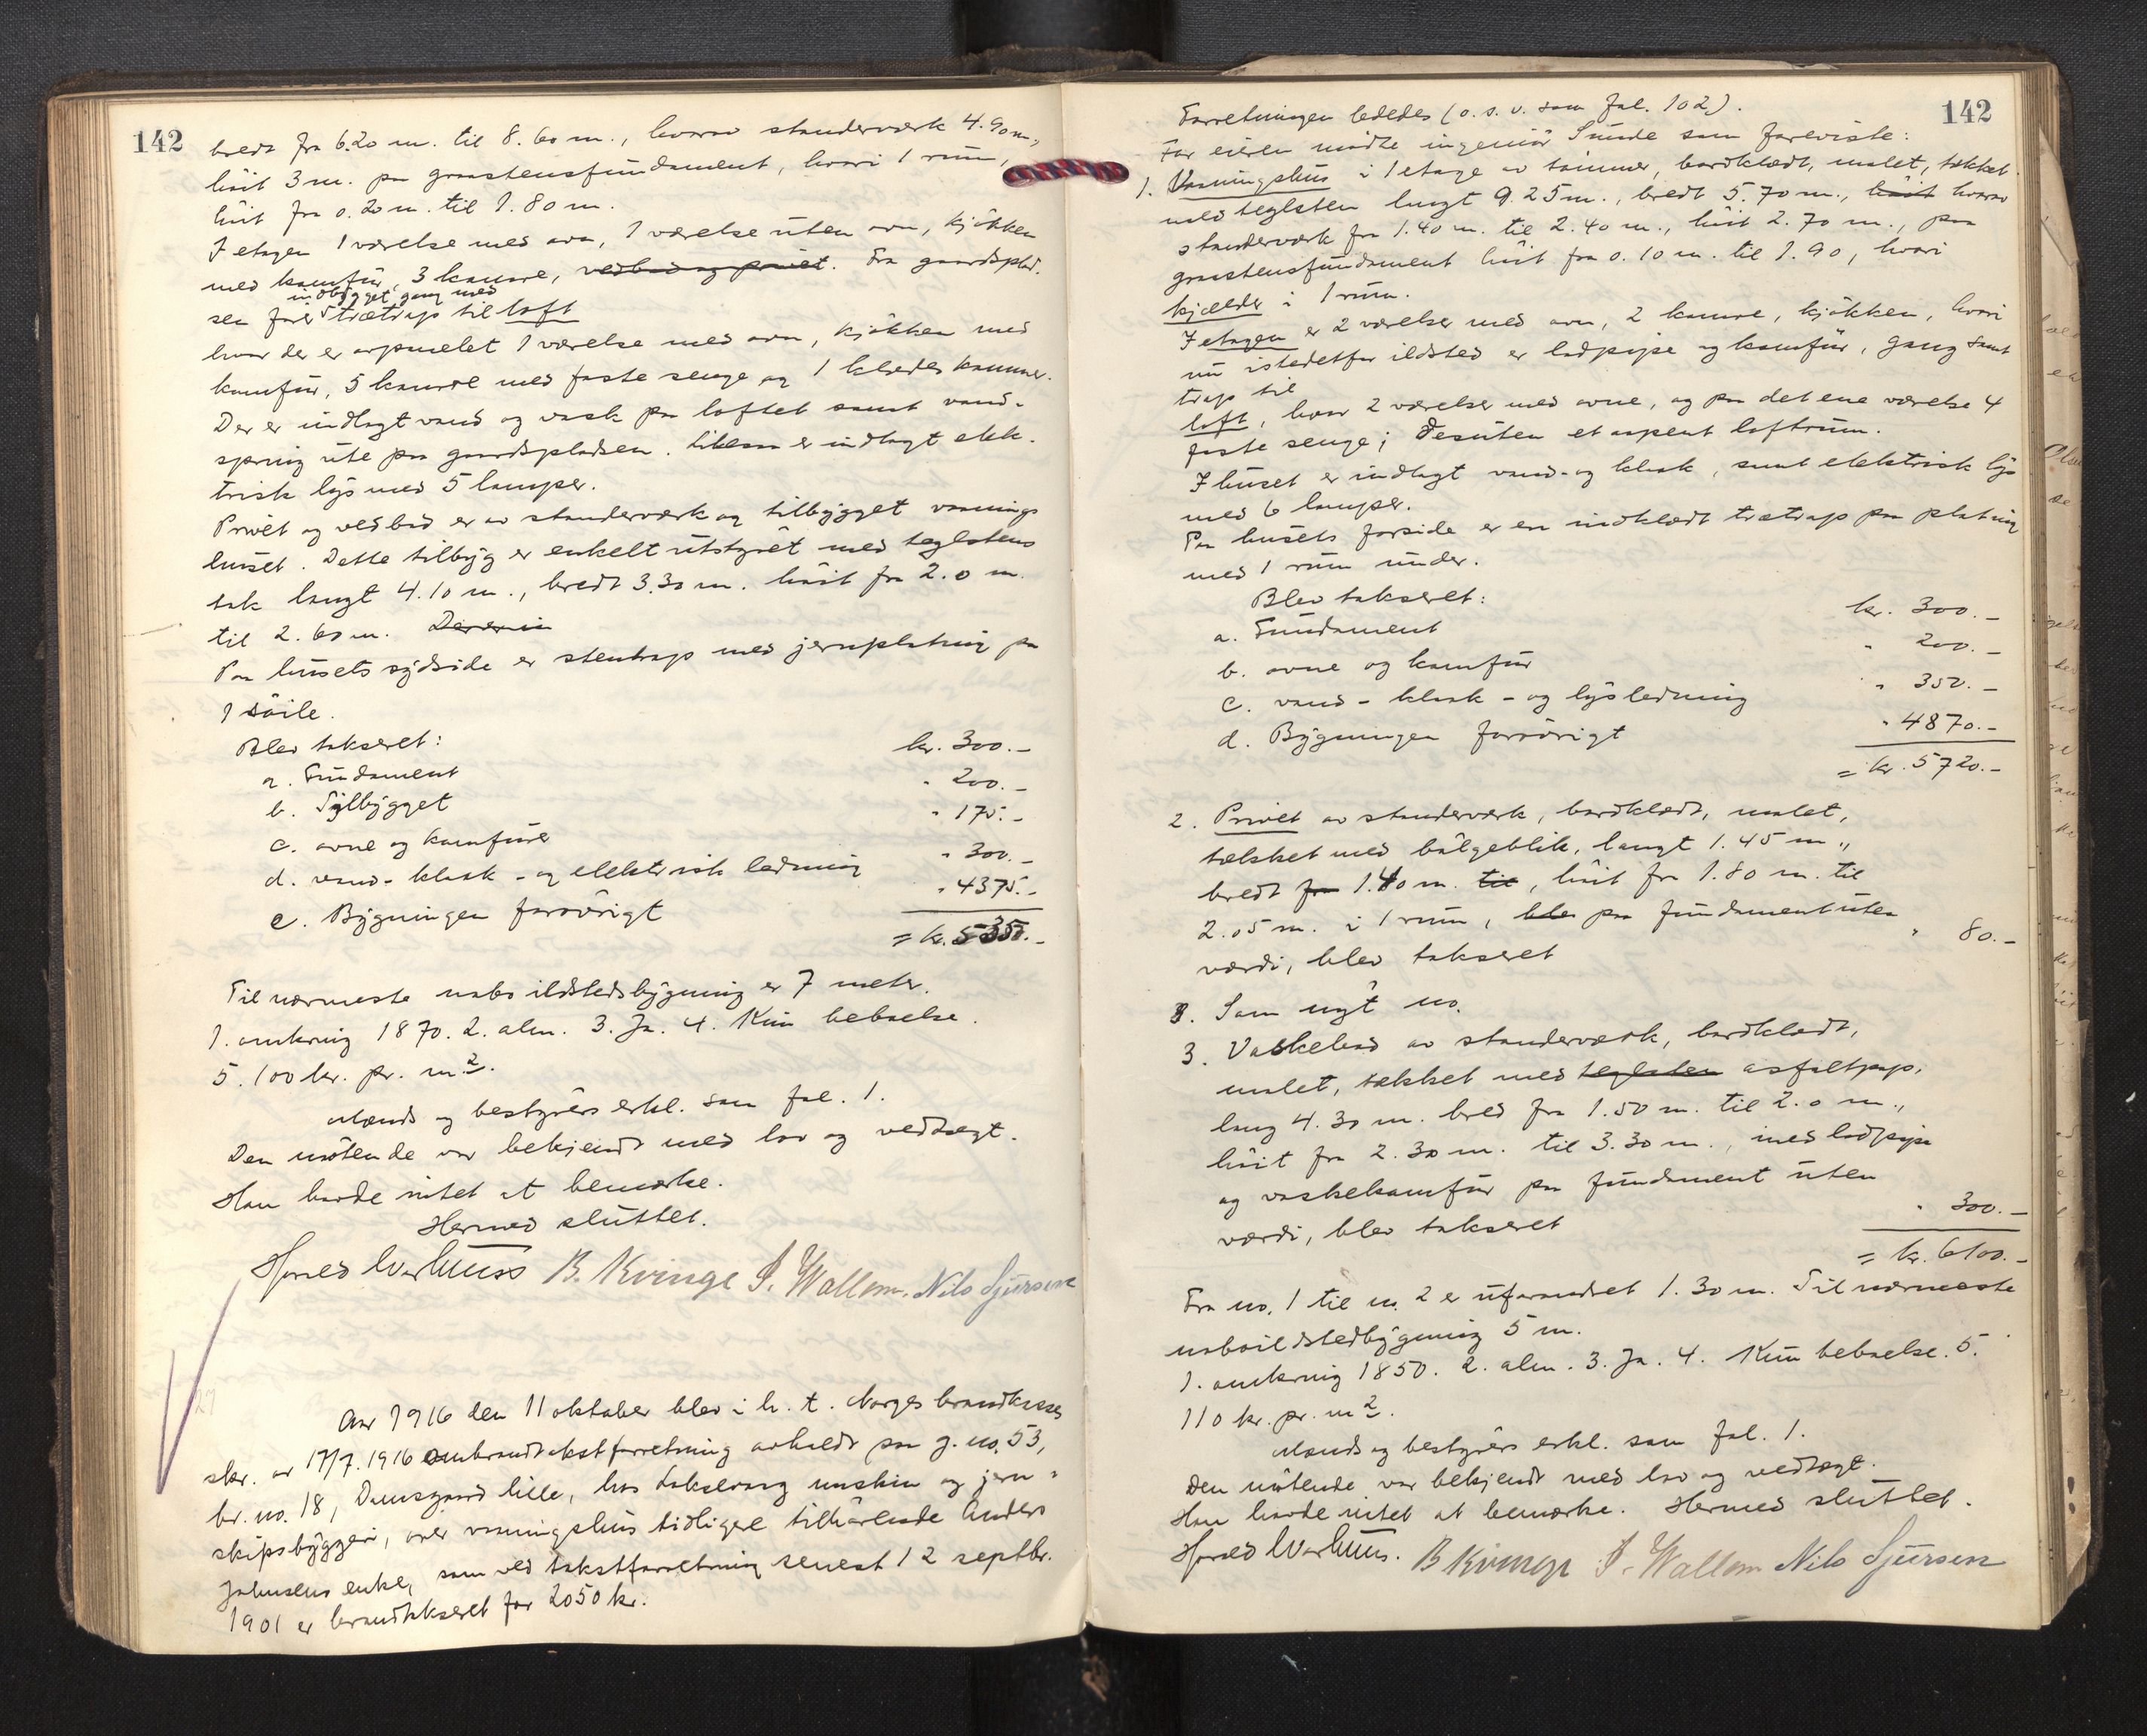 142
bredt fra 6.20 m. til 8.60 m., hvorav standerværk 4.90 m.,
høit 3 m. paa graastensfundament, hvori 1 rum,
høit fra 0.20 m. til 1.80 m.
I etagen 1 værelse med ovn, 1 værelse uten ovn, kjøkken
med komfur, 3 kamre, vedbod og privet. Fra gaardsplad-
sen fører indbygget gang med trætrap til loft
hvor der er oppanelet 1 værelse med ovn, kjøkken med
komfur, 5 kamre med faste senge og 1 klædeskammer.
Der er indlagt vand og vask paa loftet samt vand-
spring ute paa gaardspladsen. Likesaa er indlagt elek-
trisk lys med 5 lamper.
Privet og vedbod er av standerværk og tilbygget vaanings
huset. Dette tilbyg er enkelt utstyret med teglstens
tak langt 4.10 m., bredt 3.30 m. høit fra 2.0 m.
til 2.60 m. Der er in
Paa husets sydside er stentrap med jernplatning paa
1 søile.
Blev takseret:
a. Fundament kr. 300.-
b. Tilbygget " 200.-
c. ovne og komfurer " 175.-
d. vand- kloak- og elektrisk ledning " 300.-
e. Bygningen forøvrigt " 4375.-
= kr. 5350.-
Til nærmeste nabo ildstedsbygning er 7 meter.
1. omkring 1870. 2. alm. 3. Ja. 4. Kun beboelse.
5. 100 kr. pr. m².
Mænds og bestyrers erkl. som fol. 1.
Den møtende var bekjendt med lov og vedtægt.
Han havde intet at bemærke.
Hermed sluttet.
B. Kvinge J. Wallem. Nils Sjursen
27
Aar 1916 den 11 oktober blev i h. t. Norges brandkasses
skr. av 17/7. 1916 ombrandtakstforretning avholdt paa g. no. 53,
br. no. 18, Damsgaard lille, hos Laksevaag maskin og jern-
skipsbyggeri, over vaaningshus tidligere tilhørende Anders
Johnsens enke, som ved takstforretning senest 12 septbr.
1901 er brandtakseret for 2050 kr.
142
Forretningen lededes (o. s. v. som fol. 102).
For eieren mødte ingeniør Sunde som foreviste:
1. Vaaningshus i 1 etage av tømmer, bordklædt, malet, tækket
med teglsten langt 9.25 m., bredt 5.70 m., høit hvorav
standerværk fra 1.40 m. til 2.40 m., høit 2.70 m., paa
graastensfundament høit fra 0.10 m. til 1.90, hvori
kjælder i 1 rum.
I etagen er 2 værelser med ovn, 2 kamre, kjøkken, hvori
nu istedetfor ildsted er lodpipe og komfur, gang samt
trap til
loft, hvor 2 værelser med ovne, og paa det ene værelse 4
faste senge; desuten et aapent loftrum.
I huset er indlagt vand- og kloak, samt elektrisk lys
med 6 lamper.
Paa husets forside er en indklædt trætrap paa platning
med 1 rum under.
Blev takseret:
a. Fundament kr. 300.-
b. ovne og komfur " 200.-
c. vand- kloak- og lysledning " 350.-
d. Bygningen forøvrigt " 4870.-
= kr. 5720.-
2. Privet av standerværk, bordklædt, malet,
tækket med bølgeblik, langt 1.45 m.,
bredt fra 1.40 m. til, høit fra 1.80 m. til
2.05 m. i 1 rum, blev paa fundament uten
værdi, blev takseret " 80.-
3. Som nyt no.
3. Vaskebod av standerværk, bordklædt,
malet, tækket med teglsten asfaltpap,
lang 4.30 m. bred fra 1.50 m. til 2.0 m.,
høit fra 2.30 m. til 3.30 m., med lodpipe
og vaskekomfur paa fundament uten
værdi, blev takseret " 300.-
= kr. 6100.-
Fra no. 1 til no. 2 er uforandret 1.30 m. Til nærmeste
naboildstedbygning 5 m.
1. omkring 1850. 2. alm. 3. Ja. 4. Kun beboelse. 5.
110 kr. pr. m².
Mænds og bestyrers erkl. som fol. 1.
Den møtende var bekjendt med lov og vedtægt.
Han havde intet at bemærke. Hermed sluttet.
B Kvinge J. Wallem Nils Sjursen